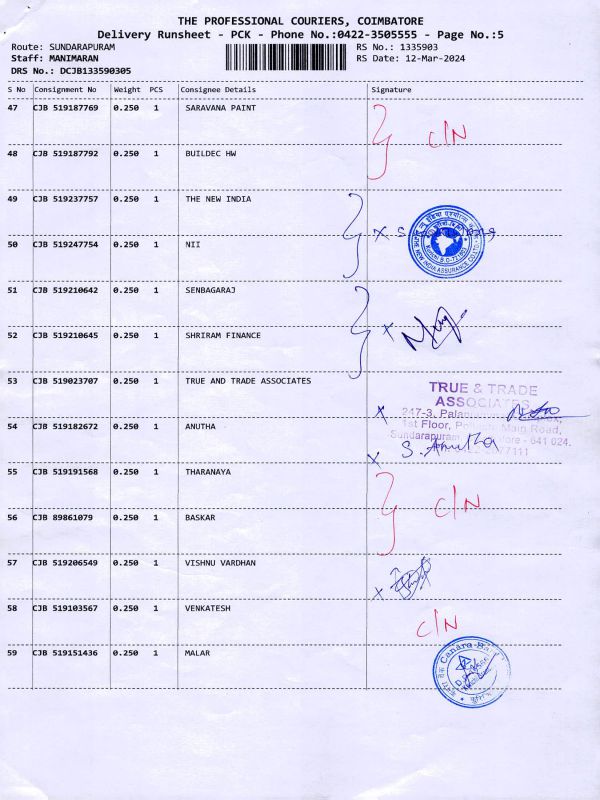 THE PROFESSIONAL COURIERS, COIMBATORE
Delivery Runsheet - PCK - Phone No.:0422-3505555 - Page No.:5
Route: SUNDARAPURAM
RS No.: 1335903
Staff: MANIMARAN
RS Date: 12-Mar-2024
DRS No.: DCJB133590305
S No Consignment No Weight PCS Consignee Details Signature
47 CJB 519187769 0.250 1 SARAVANA PAINT
C/N
48 CJB 519187792 0.250 1 BUILDEC HW
49 CJB 519237757 0.250 1 THE NEW INDIA
x
50 CJB 519247754 0.250 1 NII
51 CJB 519210642 0.250 1 SENBAGARAJ
x
52 CJB 519210645 0.250 1 SHRIRAM FINANCE
53 CJB 519023707 0.250 1 TRUE AND TRADE ASSOCIATES
TRUE & TRADE
ASSOCIATES
x 247-3,
1st Floor, Main Road,
54 CJB 519182672 0.250 1 ANUTHA
Sundarapuram, - 641 024.
x S. Anutha
55 CJB 519191568 0.250 1 THARANAYA
C/N
56 CJB 89861079 0.250 1 BASKAR
57 CJB 519206549 0.250 1 VISHNU VARDHAN
x
58 CJB 519103567 0.250 1 VENKATESH
C/N
59 CJB 519151436 0.250 1 MALAR
Canara Bank